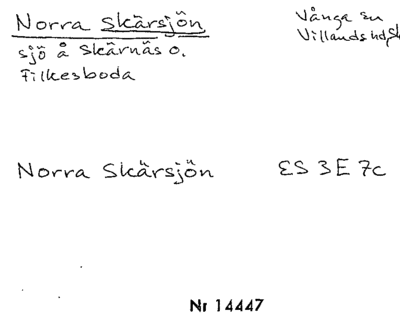 Norra Skärsjön
Vånga sn
Villands hd, Sk
sjö å Skärnäs o.
Filkesboda
Norra Skärsjön ES 3E 7c
Nr 14447